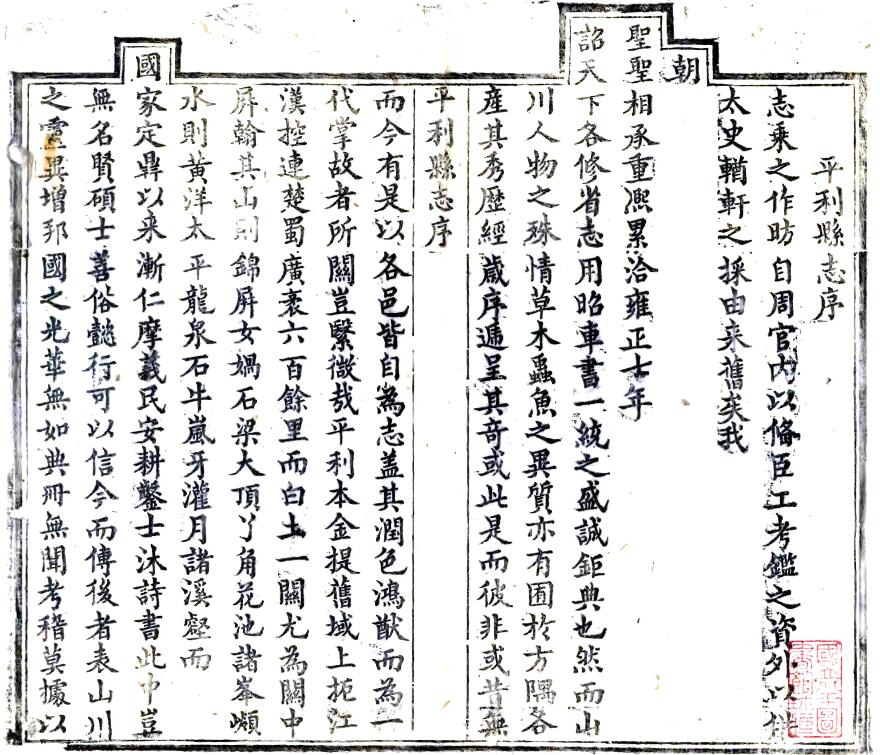 平利縣志序
志乘之作昉自周官内以俻臣工考鑑之資外以供
太史輶軒之採由来舊矣我
朝
聖聖相承重凞累洽雍正士年
詔天下各修省志用昭車書一統之盛誠鉅典也然而山
川人物之殊情草木蟲魚之異質亦有囿於方隅各
産其秀歴經歲序遞呈其奇或此是而彼非或昔無
平利縣志序
而今有是以各邑皆自為志盖其潤色鴻猷而為一
代掌故者所關豈緊微哉平利本金提舊域上扼江
漢控連楚蜀廣袤六百餘里而白土一關尤為關中
屏翰其山則錦屏女媧石梁大頂丫角花池諸峯巘
水則黃洋太平龍泉石牛嵐牙灌月諸溪壑而
國家定鼎以来漸仁摩義民安耕鑿士沐詩書此中豈
無名賢碩士善俗懿行可以信今而傳後者表山川
之靈異增邦國之光華無如典冊無聞考稽莫據以